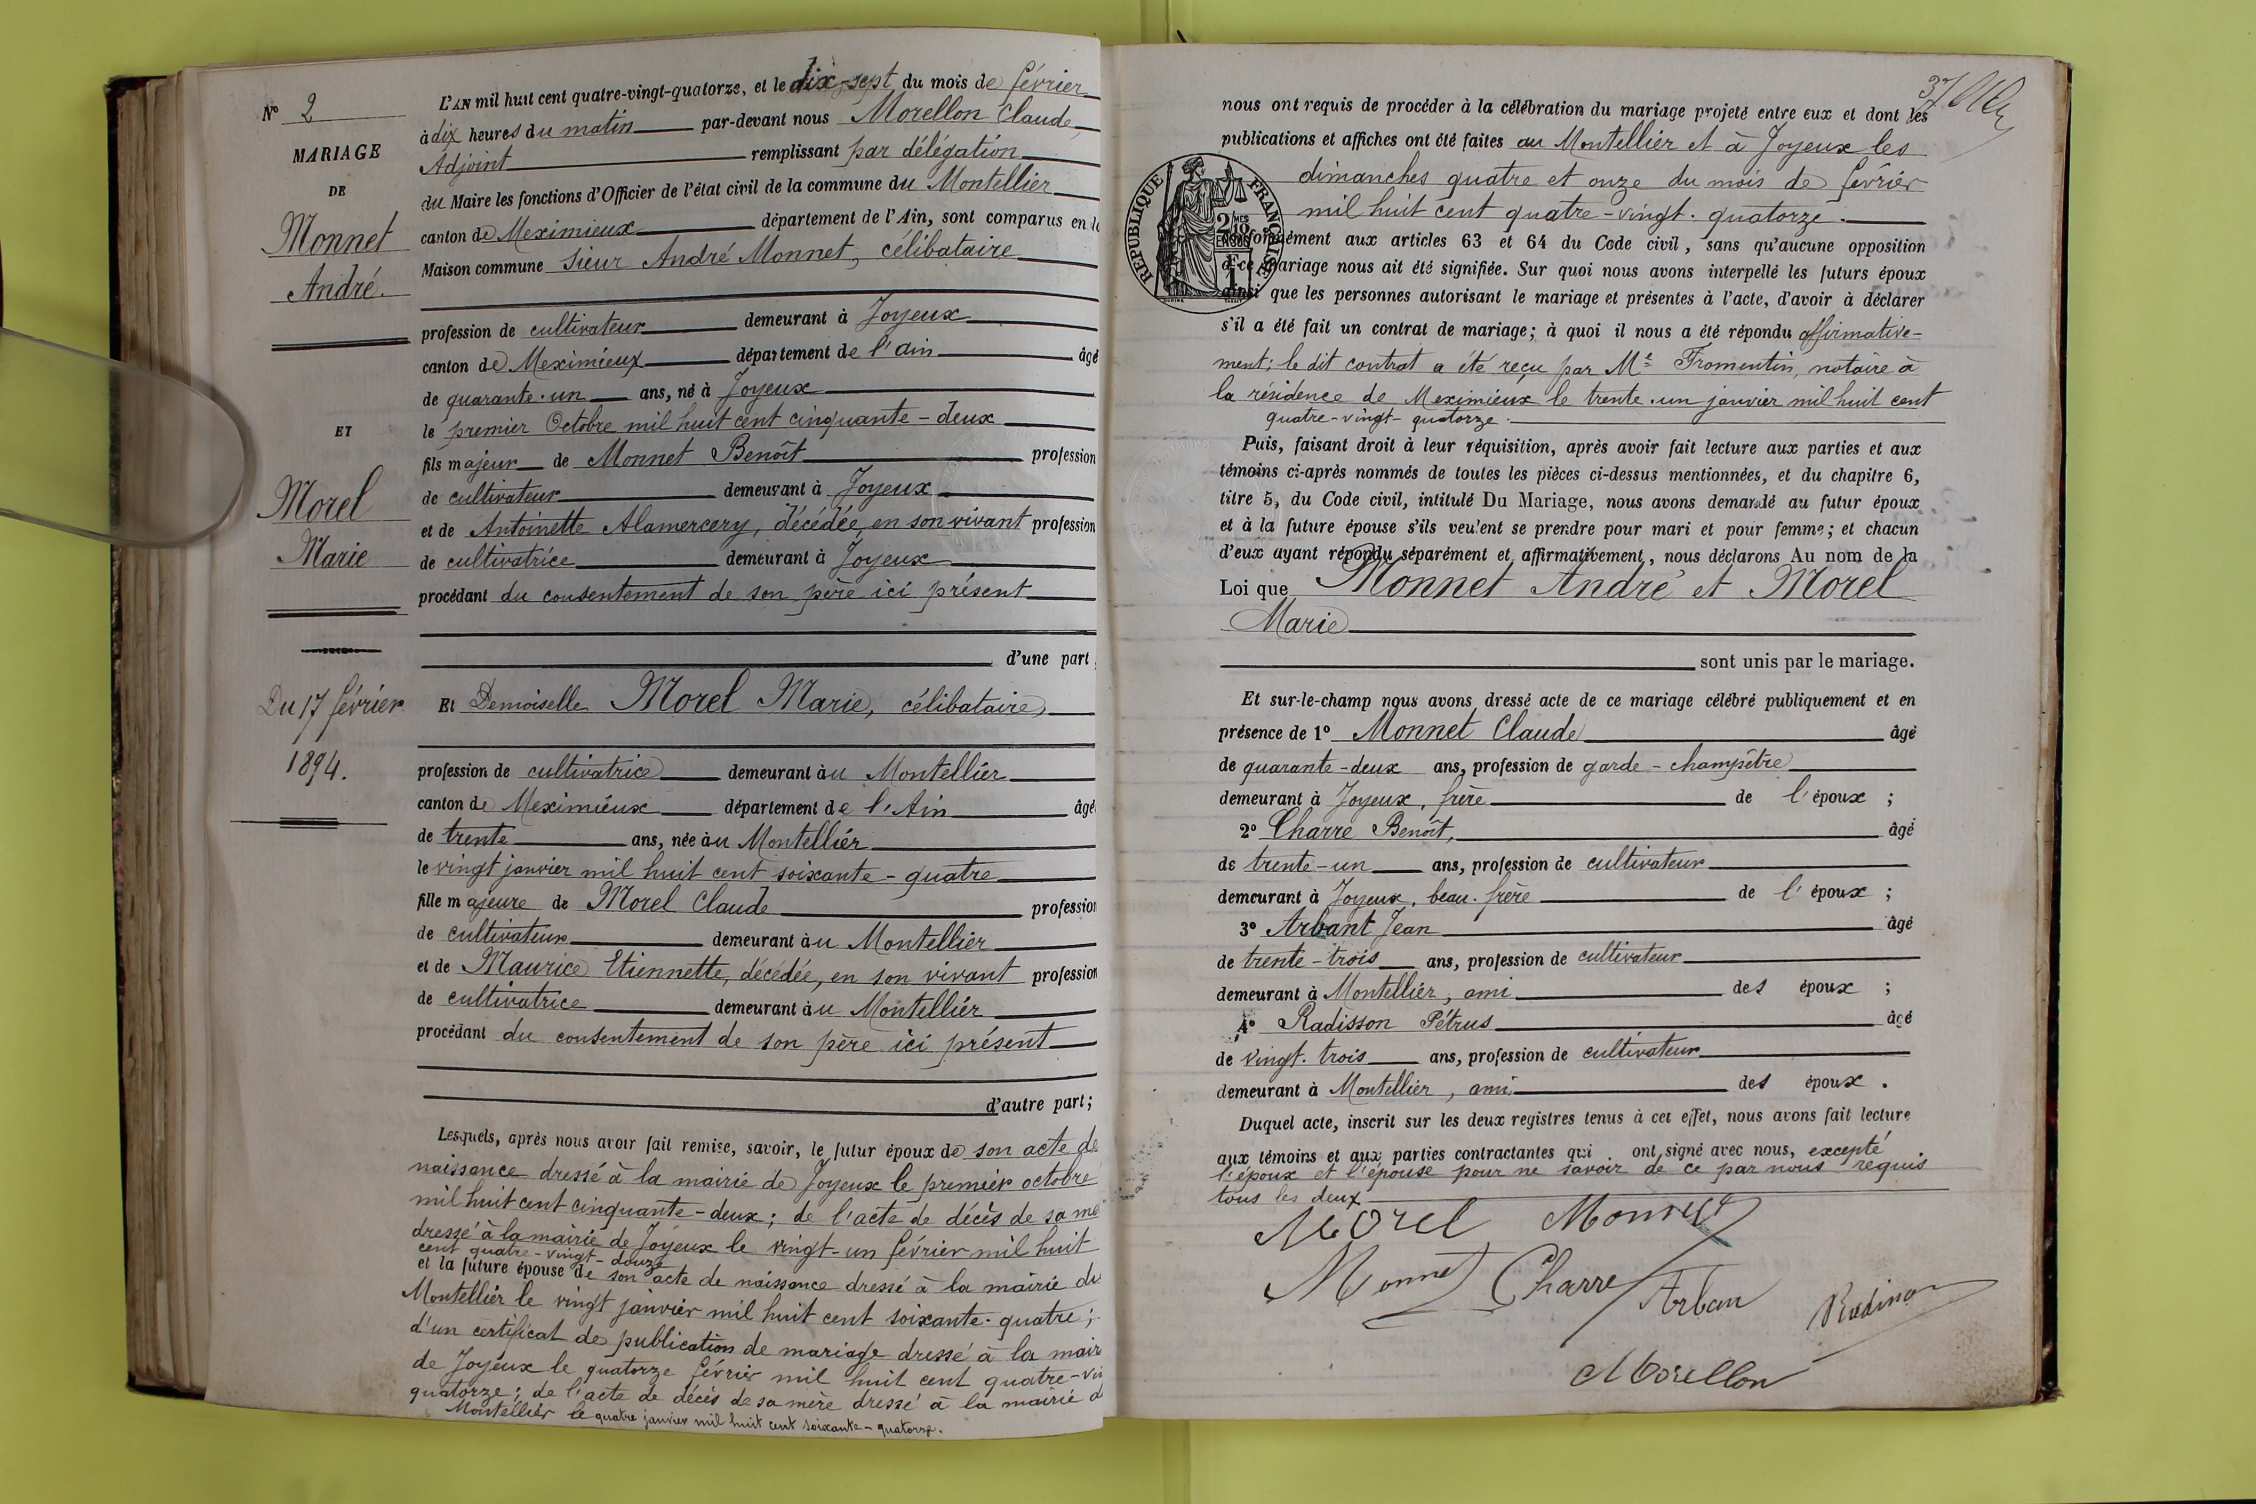 Nº 2
MARIAGE
DE
Monnet
André.
ET
Morel
Marie
Du 17 février
1894.
L'AN mil huit cent quatre-vingt-quatorze, et le dix-sept du mois de février
à dix heures du matin par-devant nous Morellon Claude,
Adjoint remplissant par délégation
du Maire les fonctions d'Officier de l'état civil de la commune du Montellier
canton de Meximieux département de l'Ain, sont comparus en la
Maison commune Sieur André Monnet, célibataire
profession de cultivateur demeurant à Joyeux
canton de Meximieux département de l'Ain âgé
de quarante-un ans, né à Joyeux
le premier Octobre mil huit cent cinquante-deux
fils majeur de Monnet Benoît profession
de cultivateur demeurant à Joyeux
et de Antoinette Alamercery, décédée, en son vivant profession
de cultivatrice demeurant à Joyeux
procédant du consentement de son père ici présent
d'une part,
Et Demoiselle Morel Marie, célibataire,
profession de cultivatrice demeurant au Montellier
canton de Meximieux département de l'Ain âgé
de trente ans, née au Montellier
le vingt janvier mil huit cent soixante-quatre
fille majeure de Morel Claude profession
de cultivateur demeurant au Montellier
et de Maurice Etiennette, décédée, en son vivant profession
de cultivatrice demeurant au Montellier
procédant du consentement de son père ici présent
d'autre part;
Lesquels, après nous avoir fait remise, savoir, le futur époux de son acte de
naissance dressé à la mairie de Joyeux le premier octobre
mil huit cent cinquante-deux; de l'acte de décès de sa mè
dressé à la mairie de Joyeux le vingt-un février mil huit
cent quatre-vingt-douze
et la future épouse de son acte de naissance dressé à la mairie du
Montellier le vingt janvier mil huit cent soixante-quatre;
d'un certificat de publication de mariage dressé à la mair
de Joyeux le quatorze février mil huit cent quatre-vin
quatorze; de l'acte de décès de sa mère dressé à la mairie d
Montellier le quatre janvier mil huit cent soixante-quatorze.
37
nous ont requis de procéder à la célébration du mariage projeté entre eux et dont les
publications et affiches ont été faites au Montellier et à Joyeux les
dimanches quatre et onze du mois de février
mil huit cent quatre-vingt-quatorze.
RÉPUBLIQUE FRANÇAISE
2/10 EN SUS
1F
conformément aux articles 63 et 64 du Code civil, sans qu'aucune opposition
à ce mariage nous ait été signifiée. Sur quoi nous avons interpellé les futurs époux
ainsi que les personnes autorisant le mariage et présentes à l'acte, d'avoir à déclarer
s'il a été fait un contrat de mariage; à quoi il nous a été répondu affirmative-
ment; le dit contrat a été reçu par Me Fromentin, notaire à
la résidence de Meximieux le trente-un janvier mil huit cent
quatre-vingt-quatorze.
Puis, faisant droit à leur réquisition, après avoir fait lecture aux parties et aux
témoins ci-après nommés de toutes les pièces ci-dessus mentionnées, et du chapitre 6,
titre 5, du Code civil, intitulé Du Mariage, nous avons demandé au futur époux
et à la future épouse s'ils veulent se prendre pour mari et pour femme; et chacun
d'eux ayant répondu séparément et affirmativement, nous déclarons Au nom de la
Loi que Monnet André et Morel
Marie
sont unis par le mariage.
Et sur-le-champ nous avons dressé acte de ce mariage célébré publiquement et en
présence de 1º Monnet Claude âgé
de quarante-deux ans, profession de garde-champêtre
demeurant à Joyeux, frère de l'époux;
2º Charre Benoît, âgé
de trente-un ans, profession de cultivateur
demeurant à Joyeux, beau-frère de l'époux;
3º Arbant Jean âgé
de trente-trois ans, profession de cultivateur
demeurant à Montellier, ami des époux;
4º Radisson Pétrus âgé
de vingt-trois ans, profession de cultivateur
demeurant à Montellier, ami des époux.
Duquel acte, inscrit sur les deux registres tenus à cet effet, nous avons fait lecture
aux témoins et aux parties contractantes qui ont signé avec nous, excepté
l'époux et l'épouse pour ne savoir de ce par nous requis
tous les deux
Morel Monnet
Monnet Charre Arban Radison
Morellon